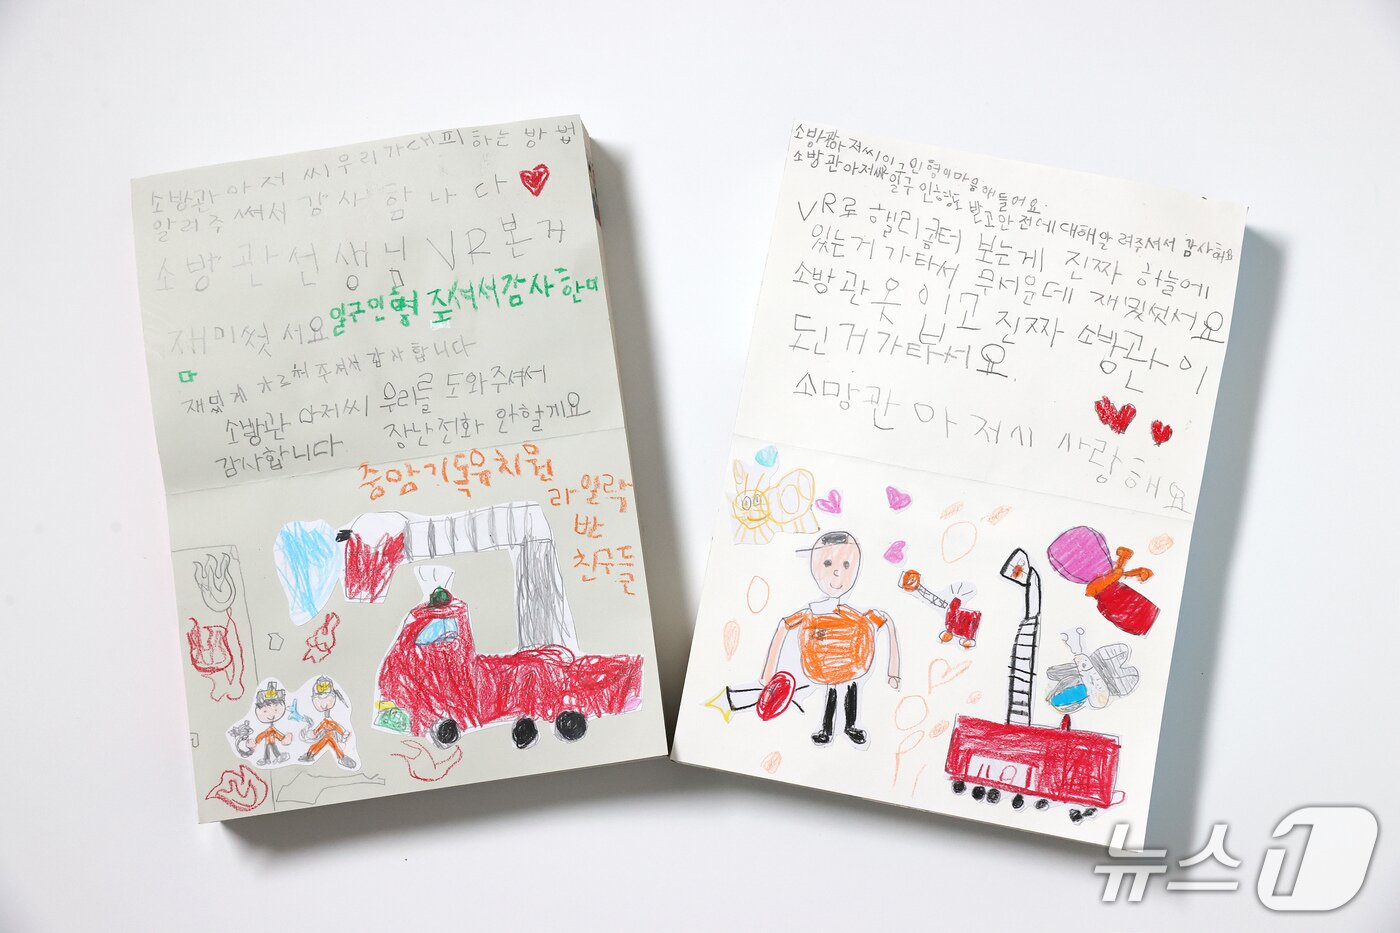 소방관 아저 씨 우리가 대피 하는 방 법
알려 주 셔서 감 사 함 니 다
소방 관 선 생 님 VR 본 거
재미썻 서요 일구인형 주셔서 감사 한미
다
재밌게 가르쳐 주셔서 감사 합니다
소방관 아저씨 우리를 도와주셔서
감사합니다 장난전화 안할게요
중앙기독유치원
라일락
반
친구들
소방관 아저씨 일구 인형이 마음에 들어요
소방관 아저씨 일구 인형도 받고 안전에 대해 알려주셔서 감사해요
VR로 헬리콥터 보는게 진짜 하늘에
있는거 가타서 무서운데 재밋섯서요
소방관옷 입고 진짜 소방관 이
된거가타써요.
소망관 아 저시 사랑해요
119
뉴스1